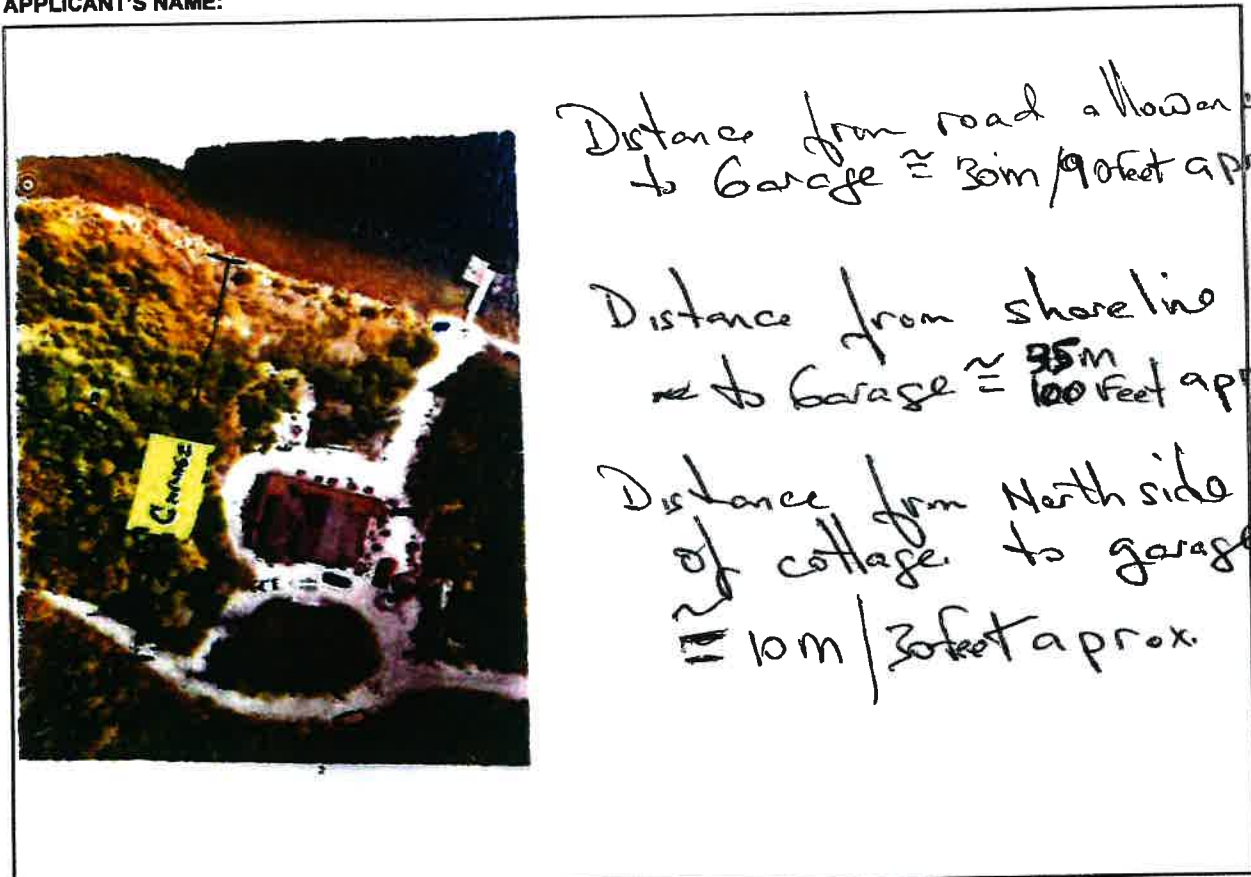 APPLICANT'S NAME:
Distance from road allowan
to Garage ≅ 30m/90feet ap
Distance from shoreline
to Garage ≅ 35m
100 feet ap
Distance from North side
of cottage. to garage
≅ 10m/30feet aprox.
GARAGE